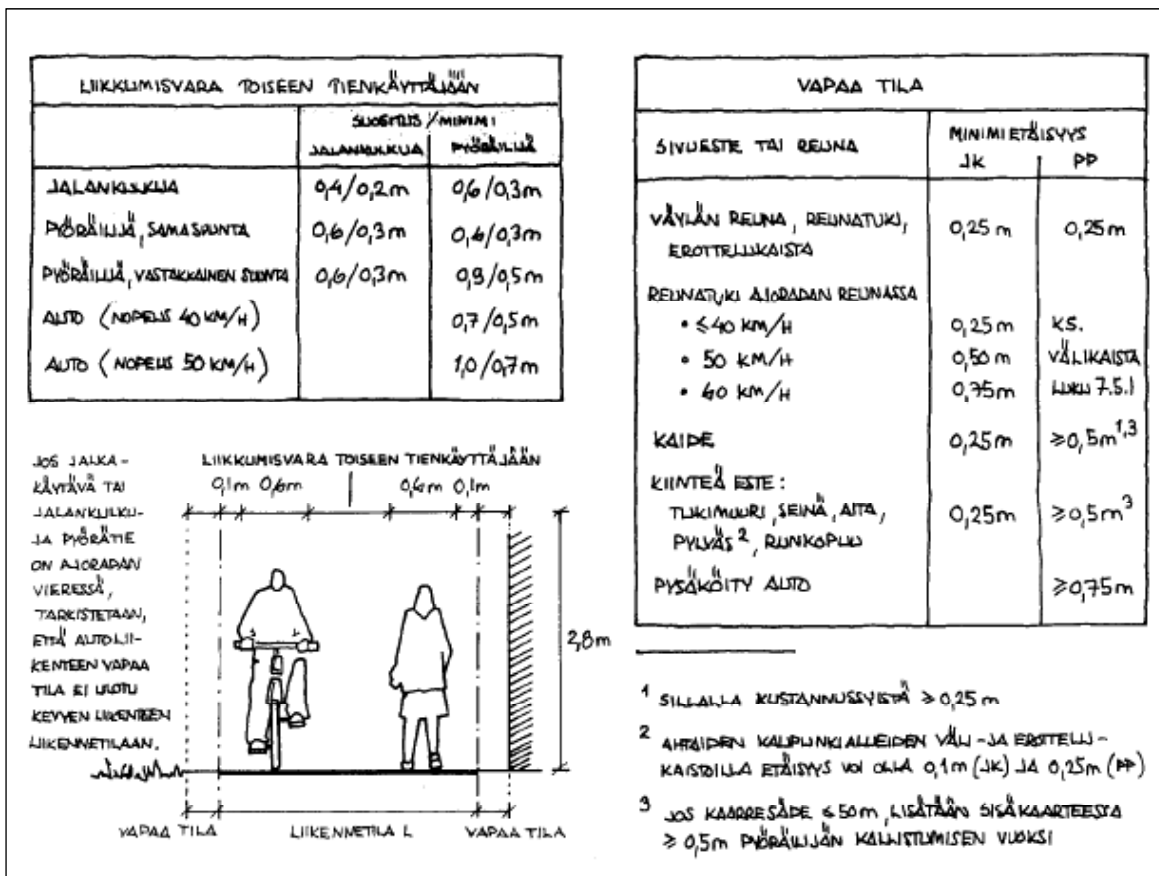 LIIKKUMISVARA TOISEEN TIENKÄYTTÄJÄÄN
SUOSITUS / MINIMI
JALANKULKIJA PYÖRÄILIJÄ
JALANKULKIJA 0,4/0,2m 0,6/0,3m
PYÖRÄILIJÄ, SAMA SUUNTA 0,6/0,3m 0,6/0,3m
PYÖRÄILIJÄ, VASTAKKAINEN SUUNTA 0,6/0,3m 0,9/0,5m
AUTO (NOPEUS 40 KM/H) 0,7/0,5m
AUTO (NOPEUS 50 KM/H) 1,0/0,7m
JOS JALKA-
KÄYTÄVÄ TAI
JALANKULKU-
JA PYÖRÄTIE
ON AJORADAN
VIERESSÄ,
TARKISTETAAN,
ETTÄ AUTOLII-
KENTEEN VAPAA
TILA EI ULOTU
KEVYEN LIIKENTEEN
LIIKENNETILAAN.
LIIKKUMISVARA TOISEEN TIENKÄYTTÄJÄÄN
0,1m 0,6m 0,6m 0,1m
2,8m
VAPAA TILA LIIKENNETILA L VAPAA TILA
VAPAA TILA
SIVUESTE TAI REUNA MINIMIETÄISYYS
JK PP
VÄYLÄN REUNA, REUNATUKI, 0,25m 0,25m
EROTTELUKAISTA
REUNATUKI AJORADAN REUNASSA
• ≤40 KM/H 0,25m KS.
• 50 KM/H 0,50m VÄLIKAISTA
• 60 KM/H 0,75m LUKU 7.5.1
KAIDE 0,25m ≥0,5m1,3
KIINTEÄ ESTE:
TUKIMUURI, SEINÄ, AITA, 0,25m ≥0,5m3
PYLVÄS2, RUNKOPUU
PYSÄKÖITY AUTO ≥0,75m
1 SILLALLA KUSTANNUSSYISTÄ ≥ 0,25 m
2 AHTAIDEN KAUPUNKIALLEIDEN VÄLI- JA EROTTELU-
KAISTOILLA ETÄISYYS VOI OLLA 0,1m (JK) JA 0,25m (PP)
3 JOS KAARRESÄDE ≤ 50m, LISÄTÄÄN SISÄKAARTEESSA
≥ 0,5m PYÖRÄILIJÄN KALLISTUMISEN VUOKSI